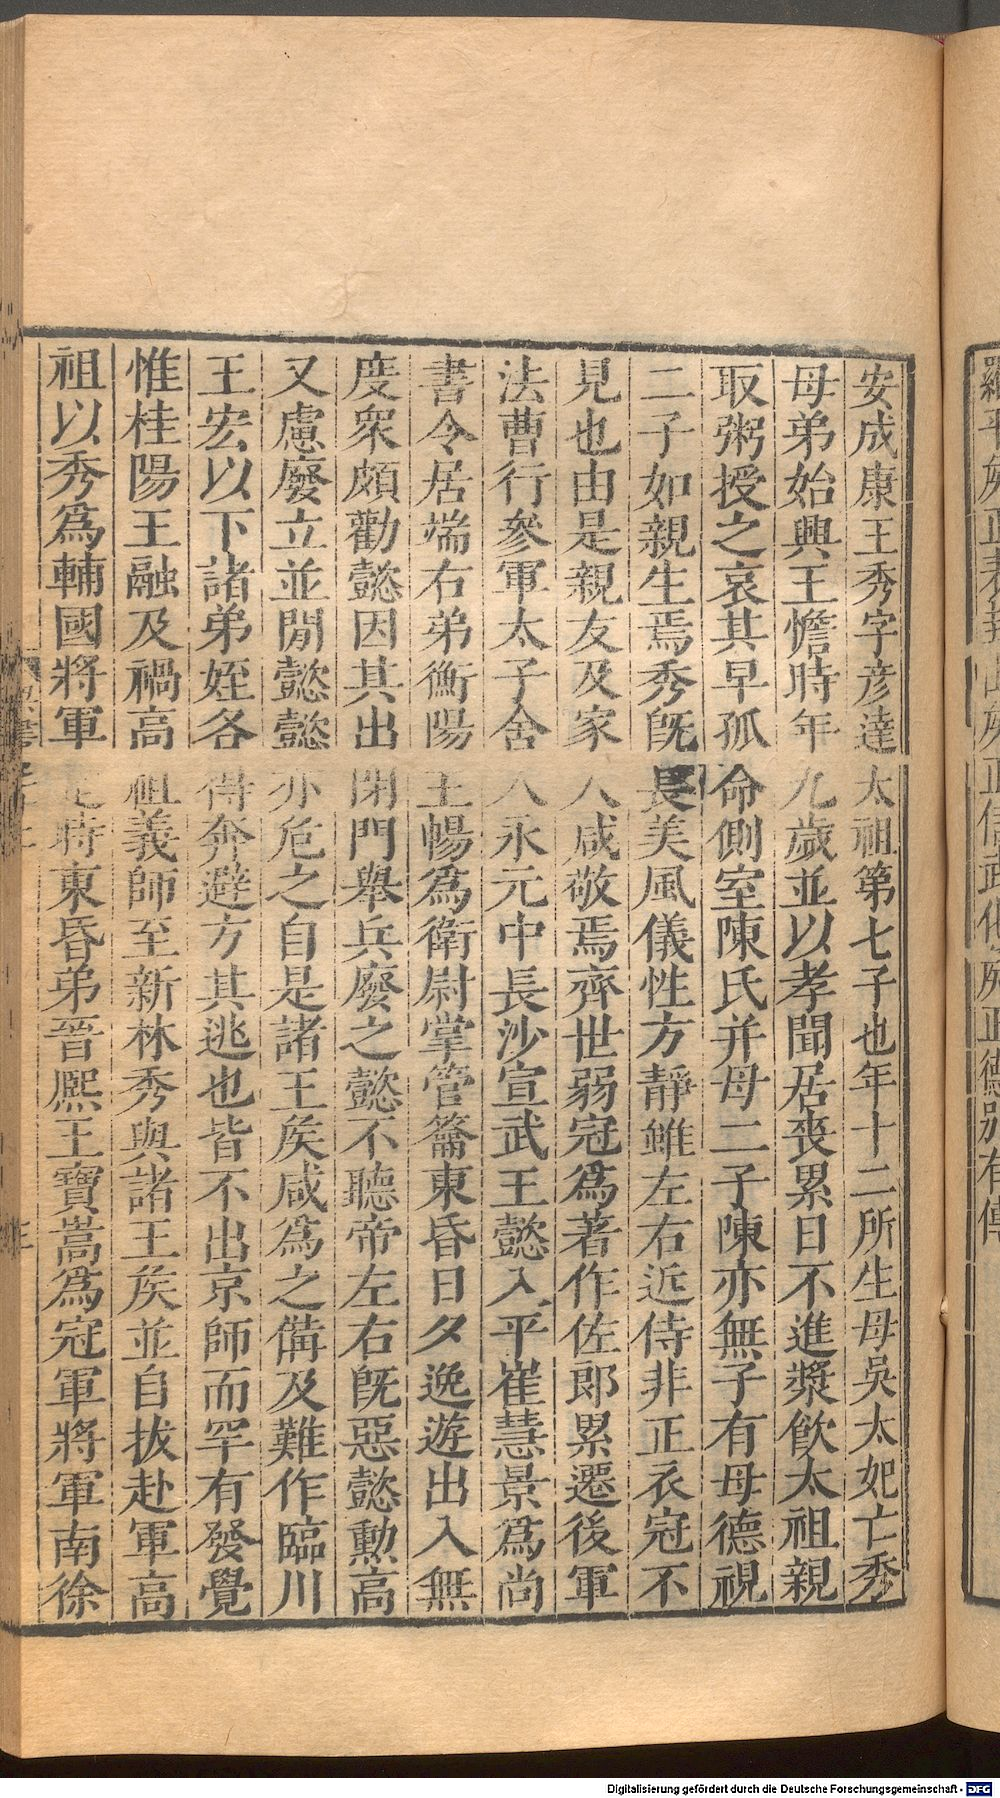 安成康王秀字彦達太祖第七子也年十二所生母吳太妃亡秀
母弟始興王憺時年九歲並以孝聞居喪累日不進漿飲太祖親
取粥授之哀其早孤命側室陳氏并母二子陳亦無子有母德視
二子如親生焉秀旣長美風儀性方靜雖左右近侍非正衣冠不
見也由是親友及家人咸敬焉齊世弱冠爲著作佐郞累遷後軍
法曹行參軍太子舍人永元中長沙宣武王懿入平崔慧景爲尚
書令居端右弟衡陽王暢爲衛尉掌管籥東昏日夕逸遊出入無
度衆頗勸懿因其出閉門舉兵廢之懿不聽帝左右旣惡懿勳高
又慮廢立並閒懿懿亦危之自是諸王矦咸爲之備及難作臨川
王宏以下諸弟姪各得奔避方其逃也皆不出京師而罕有發覺
惟桂陽王融及禍高祖義師至新林秀與諸王矦並自拔赴軍高
祖以秀爲輔國將軍是時東昏弟晉熙王寶嵩爲冠軍將軍南徐
Digitalisierung gefördert durch die Deutsche Forschungsgemeinschaft - DFG